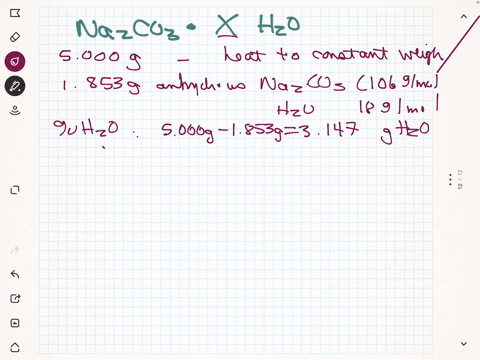 Na2CO3 • X H2O
5.000 g – heat to constant weigh
1.853 g anhydrous Na2CO3 (106 g/mol
H2O (18 g/mol
H2O : 5.000g - 1.853g = 3.147 g H2O
12 / 12